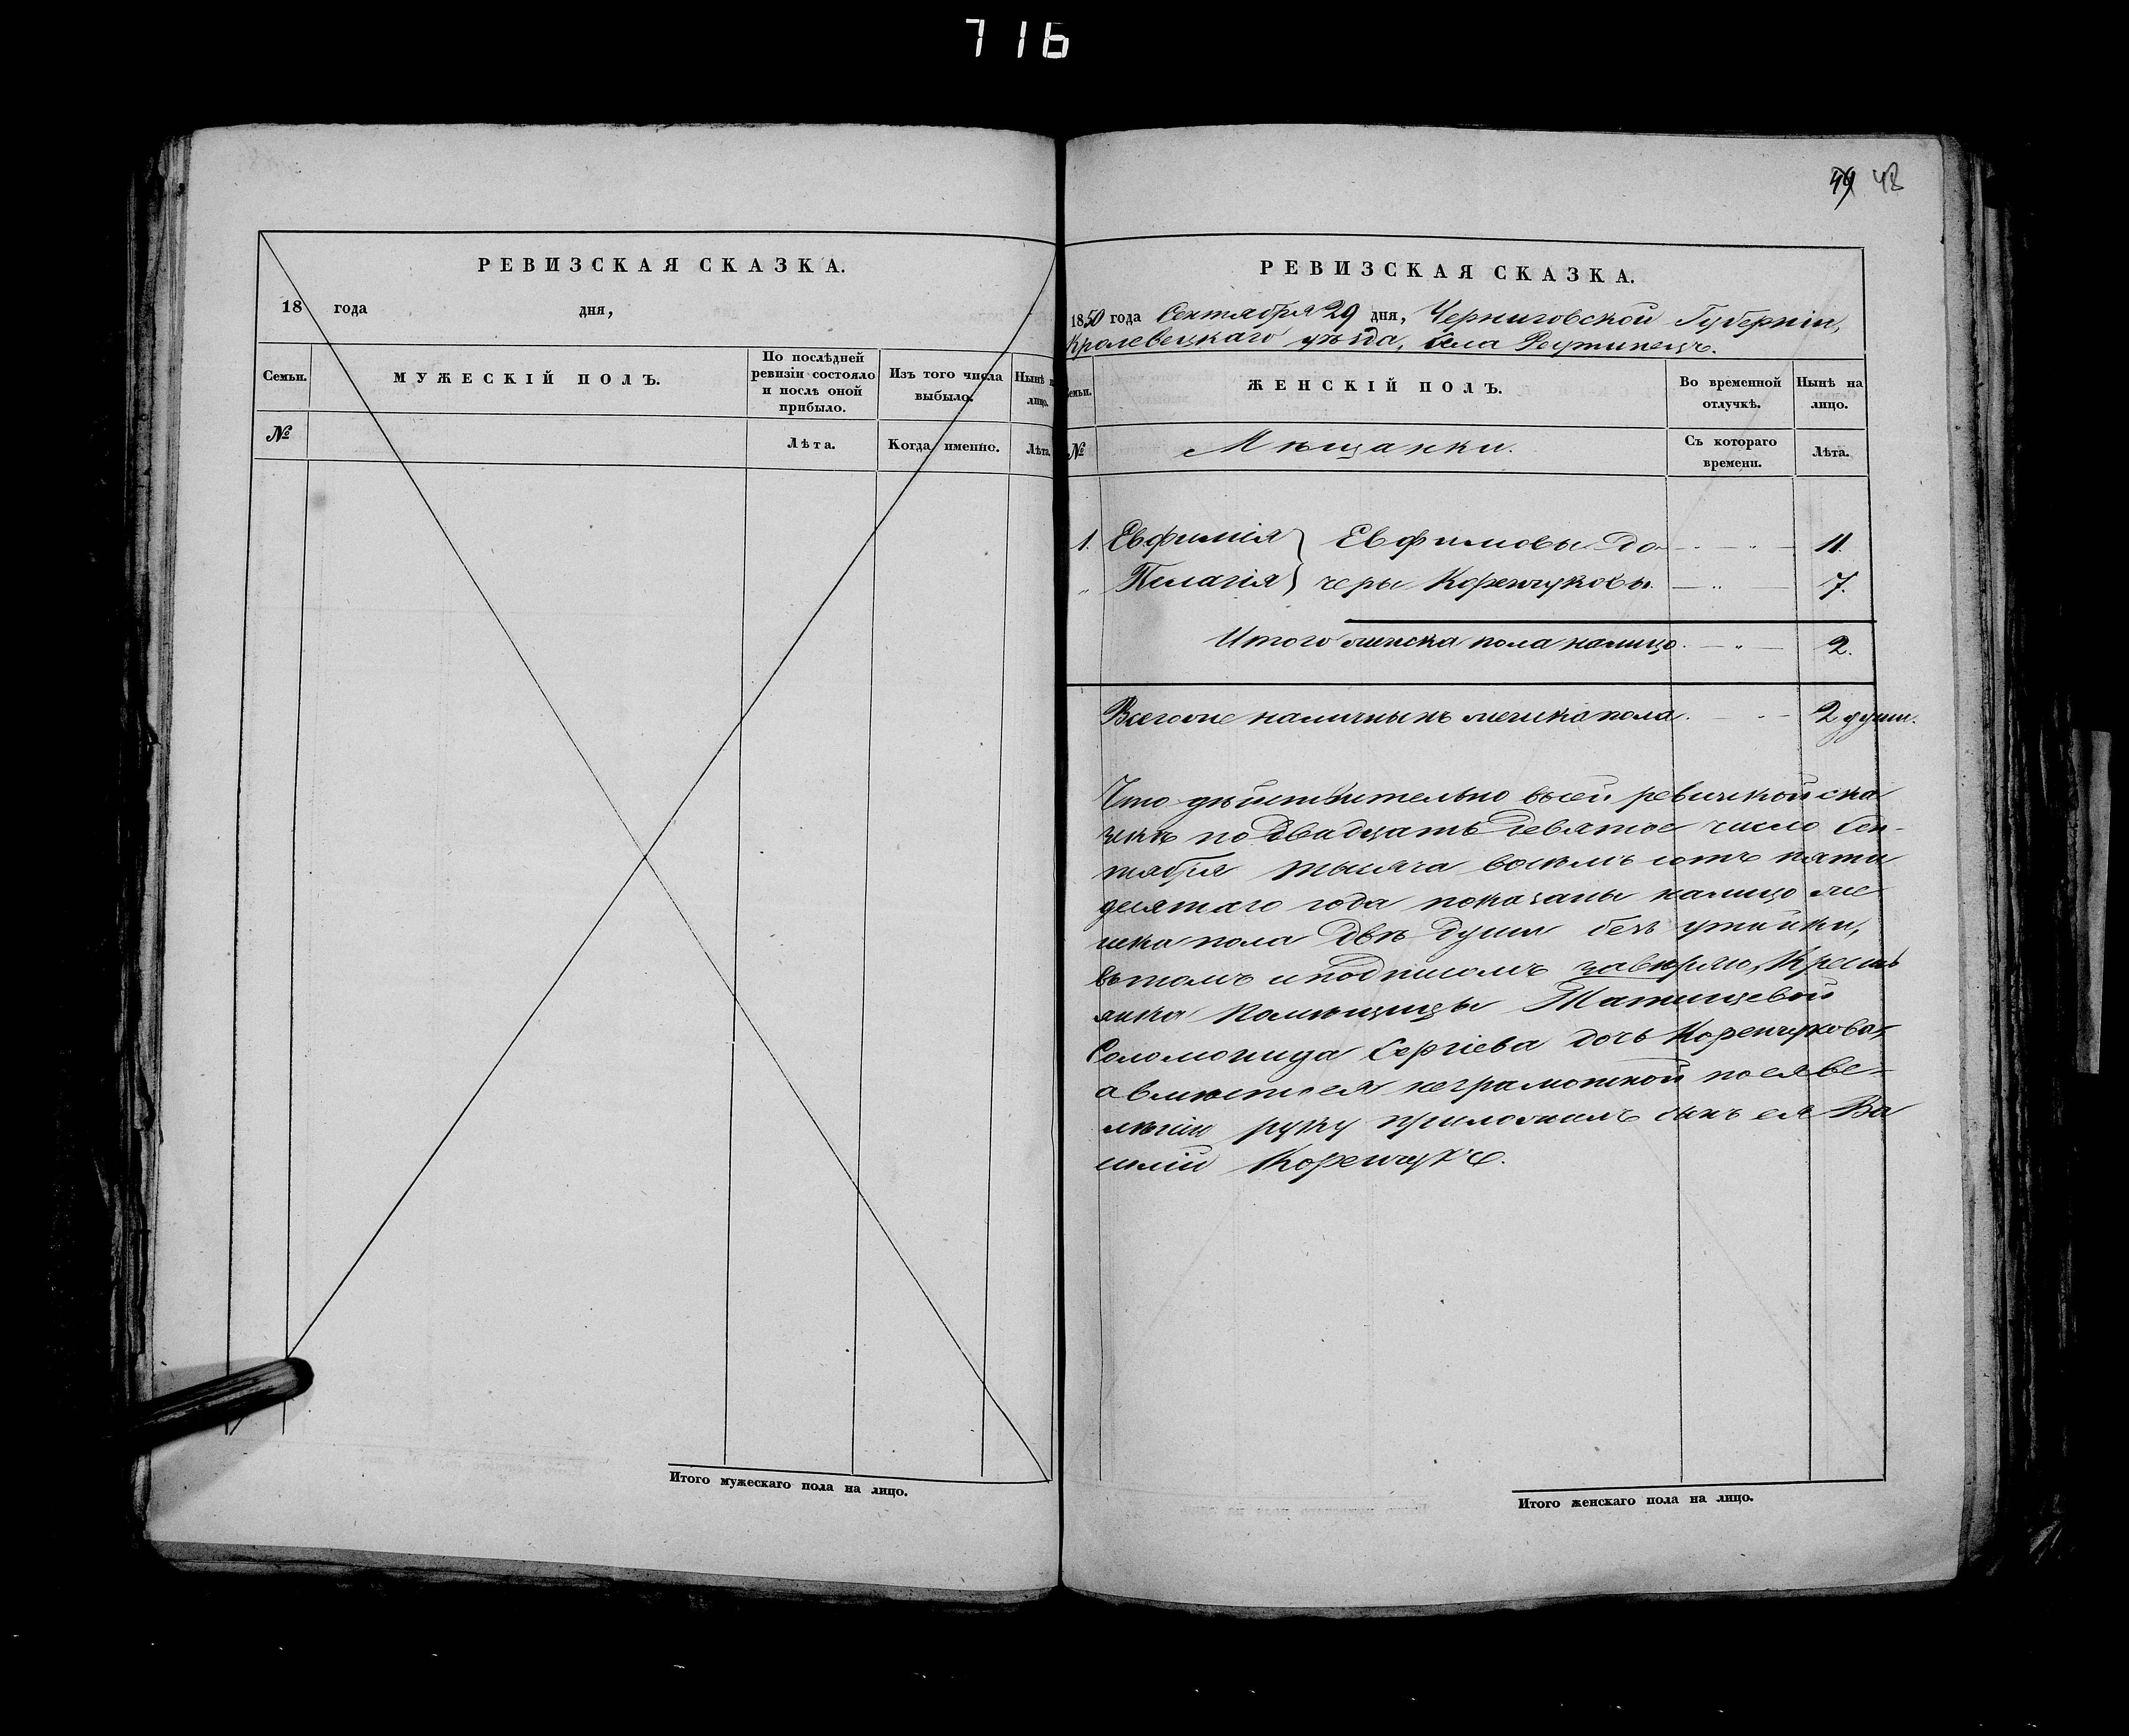 716
49 48
РЕВИЗСКАЯ СКАЗКА.
18 года дня,
Семьи.
МУЖЕСКІЙ ПОЛЪ.
По послѣдней ревизіи состояло и послѣ оной прибыло.
Изъ того числа выбыло.
Нынѣ н лицо.
№
Лѣта.
Когда именно.
Лѣта.
Итого мужескаго пола на лицо.
РЕВИЗСКАЯ СКАЗКА.
1850 года Сентября 29 дня, Черниговской Губерніи,
Кролевецкаго уѣзда, села Реутинецъ.
Семьи.
ЖЕНСКІЙ ПОЛЪ.
Во временной отлучкѣ.
Нынѣ на лицо.
№
Мѣщанки.
Съ котораго времени.
Лѣта.
1. Евфимія } Евфимовы до- — " — 11.
" Пелагія } черы Коренчуковы. — " — 7.
Итого женска пола налицо. — " — 2.
Всего же наличныхъ женска пола. — " — 2 души.
Что дѣйствительно въ сей ревизской ска
зкѣ по двадцать девятое число Сен-
тября тысяча восемь сотъ пяти
десятаго года показаны налицо же
нска пола двѣ души безъ утайки,
въ томъ и подписомъ завѣряю, Кресть
янка Помѣщицы Татищевой
Соломонида Сергіева дочь Коренчукова,
а вмѣсто ея неграмотной по ея ве-
лѣнію руку приложилъ сынъ ея Ва
силій Коренчукъ.
Итого женскаго пола на лицо.